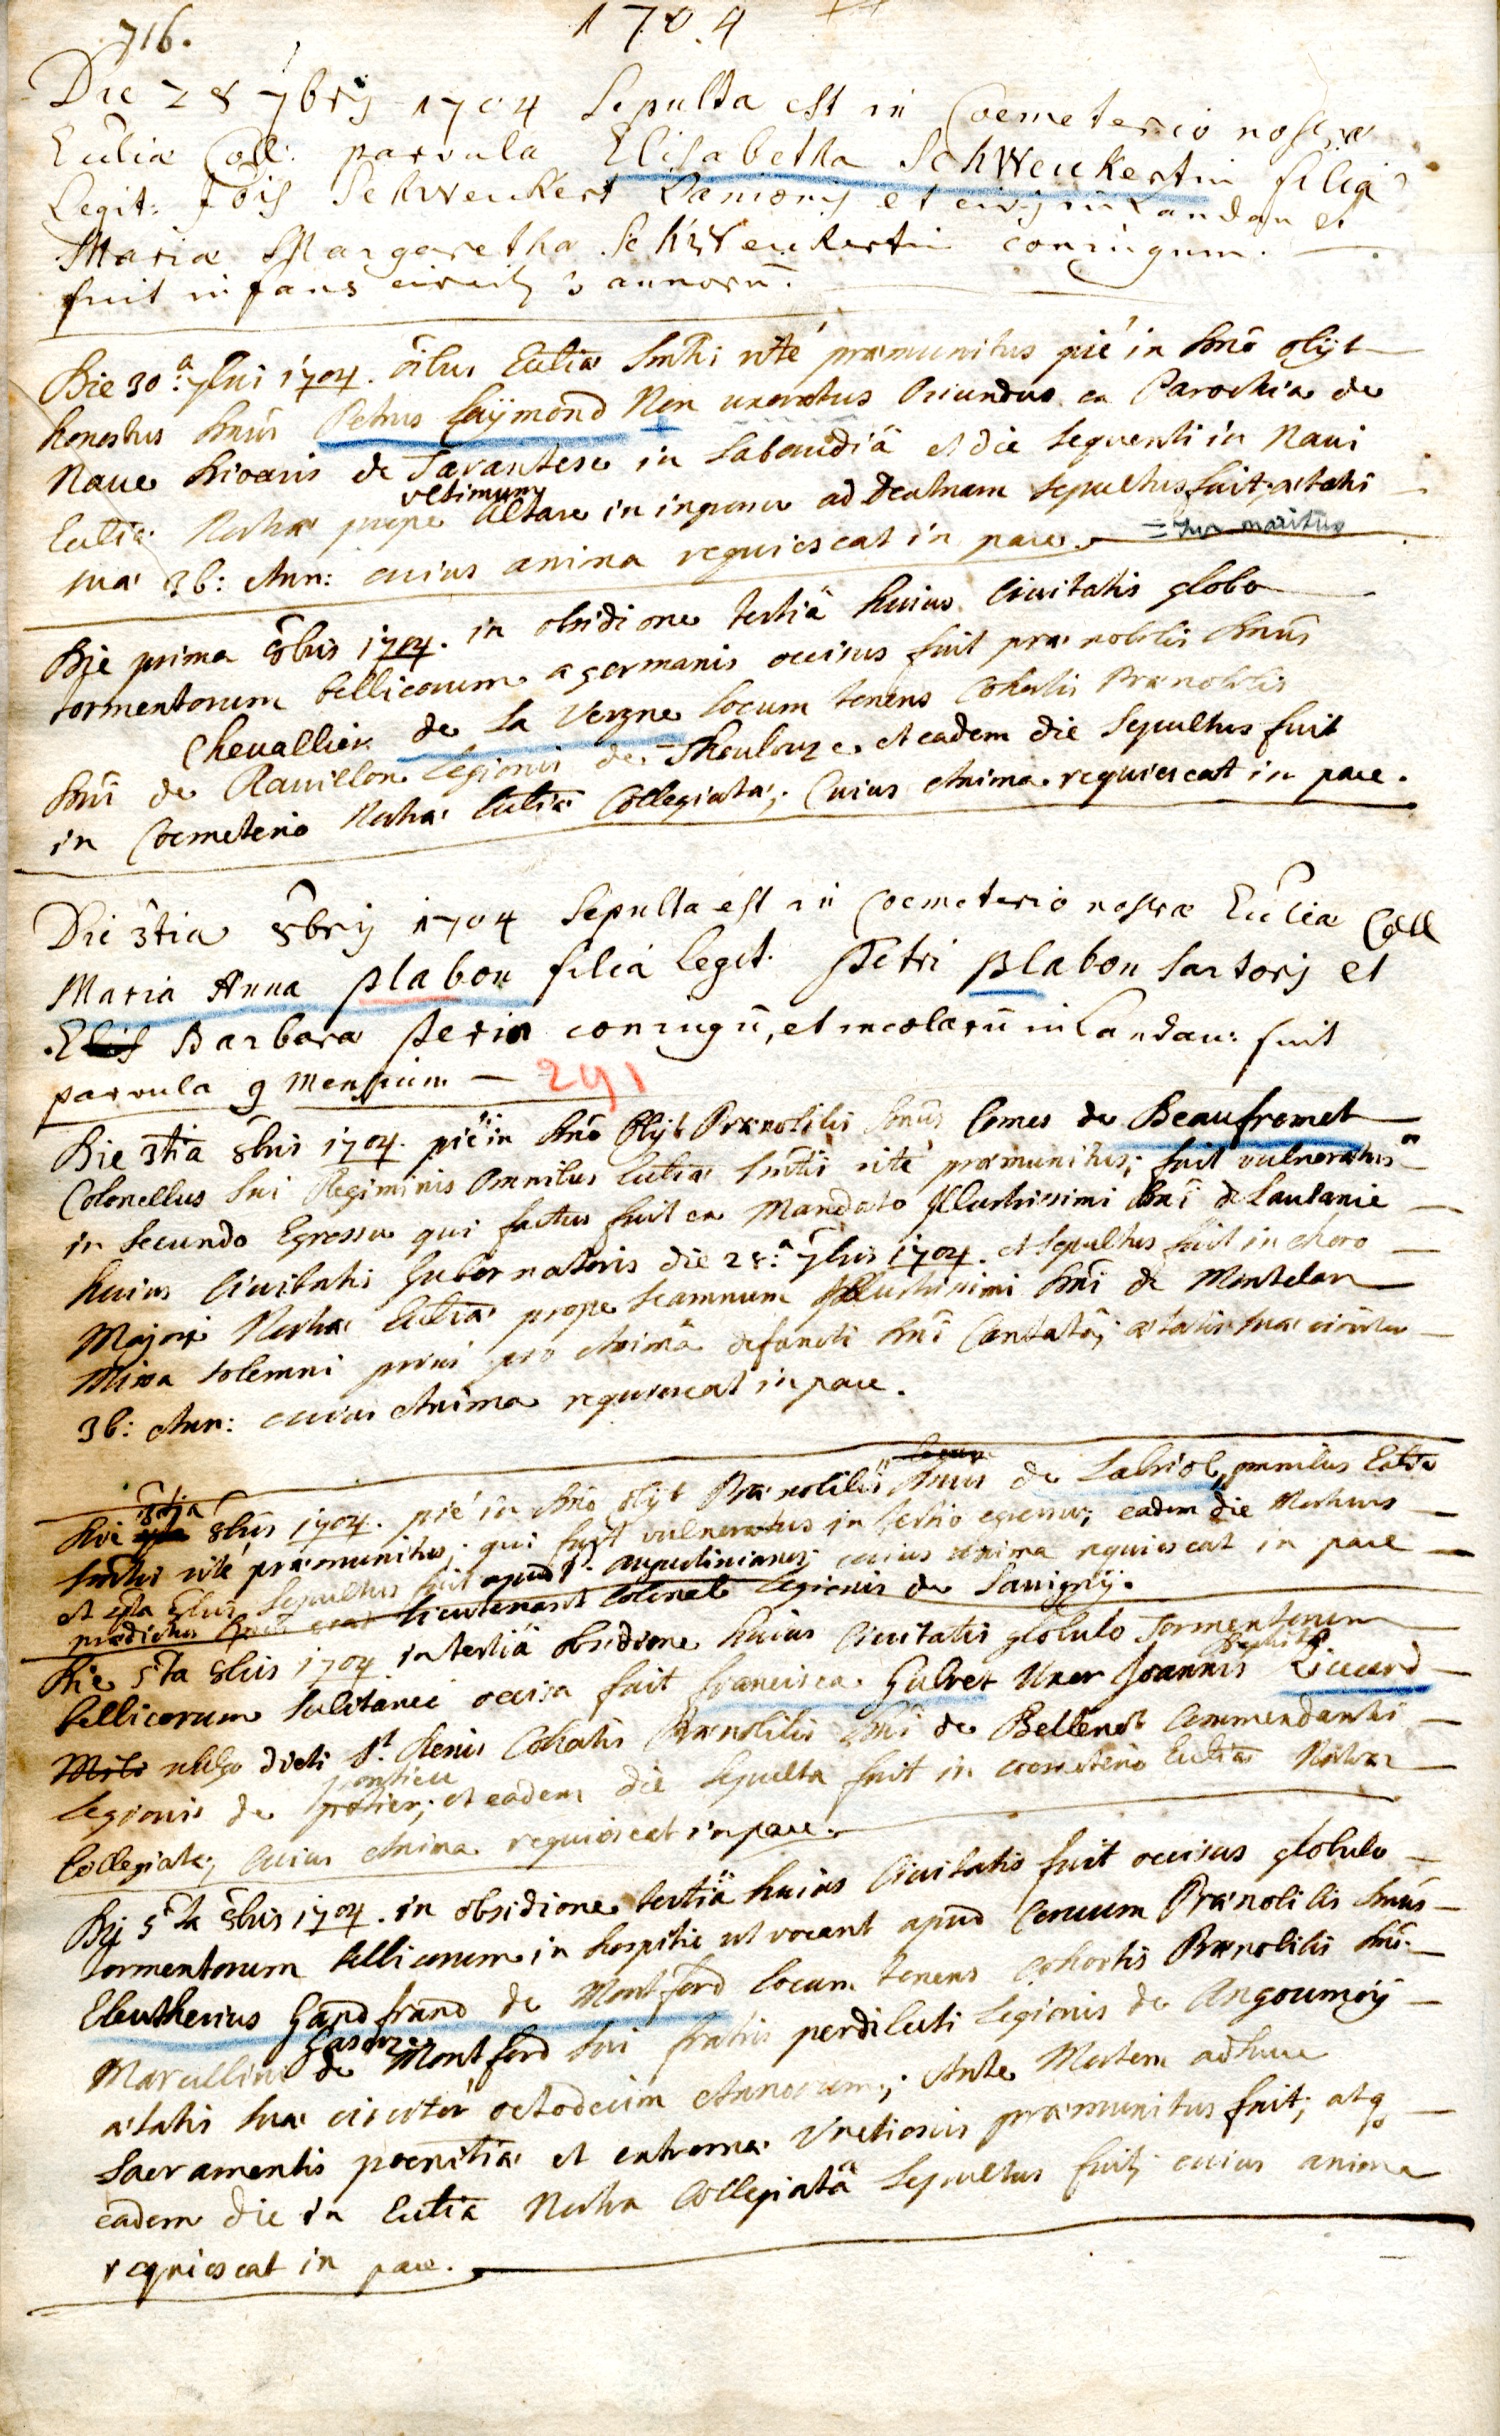 716.
1704
Die 28 7brij 1704 Sepulta est in Coemeterio nostræ
Eccliæ Coll: parvula Elisabetha Schweickertin filia
Legit: Jois Schweickert Lanionis et civis in Landau et
Mariæ Margaretha Schweickertin coniugum.
fuit infans circit 3 annorū.
Die 30.a 7bris 1704. oibus Eccliæ Smtis rité præmunitus pié in Dno obijt
honestus Dnus Petrus Eaÿmond Non uxoratus Oriundus ex Parochia de
Naue Dioæsis de Tarantese in Sabaudiâ et die sequenti in Naui
Eccliæ Nostræ prope ultimum Altare in ingressu ad Dextram Sepultus fuit ætatis
suæ 36: Ann: cuius anima requiescat in pace. = non maritus
Die prima 8bris 1704. in obsidione tertiâ huius Civitatis globo
tormentorum bellicorum a germanis occisus fuit præ nobilis Dnus
Chevallier de La Vergne Locum tenens Cohortis Prænobilis
Dni de Rauillon Legionis de Thoulouze et eadem die Sepultus fuit
in Coemeterio Nostræ Eccliæ Collegiatæ; Cuius Anima requiescat in pace.
Die 3tia 8brij 1704 Sepulta est in Coemeterio nostræ Eccliæ Coll
Maria Anna plabon filia legit. Petri plabon Sartoris et
Elis Barbara Perin coniugū, et incolarū in Landau: fuit
parvula 9 Mensium — 291
Die 3tia 8bris 1704. pié in Dno Obijt Prænobilis Dnus Comes de Beaufremet
Colonellus sui Regiminis Omnibus Eccliæ Smtis rité præmunitus; fuit vulneratus
in Secundo Egressu qui factus fuit ex Mandato Illustrissimi Dni de Laubanie
huius Civitatis Gubernatoris die 28.a 7bris 1704. et Sepultus fuit in choro
Majori Nostræ Eccliæ prope Scamnum Illustrissimi Dni de Montclar
Missa Solemni prius pro Animâ defuncti Dni Cantatâ; ætatis suæ circiter
36: Ann: cuius Anima requiescat in pace.
Die 3tia 8bris 1704. pié in Dno obijt Prænobilis Dnus de Labriol, omnibus Eccliæ
Smtis rité præmunitus; qui fuit vulneratus in tertio egressu; eadem die Mortuus
et 4ta 8bris Sepultus fuit apud P. Augustinianos; cuius anima requiescat in pace
prædictus Dnus erat Lieutenant Colonel Legionis de Sauignÿ.
Die 5ta 8bris 1704 in tertiâ obsidione huius Civitatis globulo Tormentorum
bellicorum Subitanei occisa fuit francisca Gulvet Uxor Joannis Baptistæ Licuard
Milis vulgo dicti St. Denis Cohortis Prænobilis Dni de Bellenot Commendantis
Legionis de ponticu; et eadem die Sepulta fuit in coemeterio Eccliæ Nostræ
Collegiatæ; Cuius Anima requiescat in pace.
Die 5ta 8bris 1704. in obsidione tertiâ huius Civitatis fuit occisus globulo
tormentorum bellicorum in hospitio ut vocant apud Ceruum Prænobilis Dnus
Eleutherius Gandfrand de Montford Locum tenens Cohortis Prænobilis Dni
Marcellini de Montford sui fratris perdilecti Legionis de Angoumoÿ
ætatis suæ circiter octodecim Annorum; Ante Mortem adhuc
Sacramentis poenitiæ et extremæ Unctionis præmunitus fuit; atq
eadem die in Ecclia Nostra Collegiatâ Sepultus fuit; cuius anima
requiescat in pace.